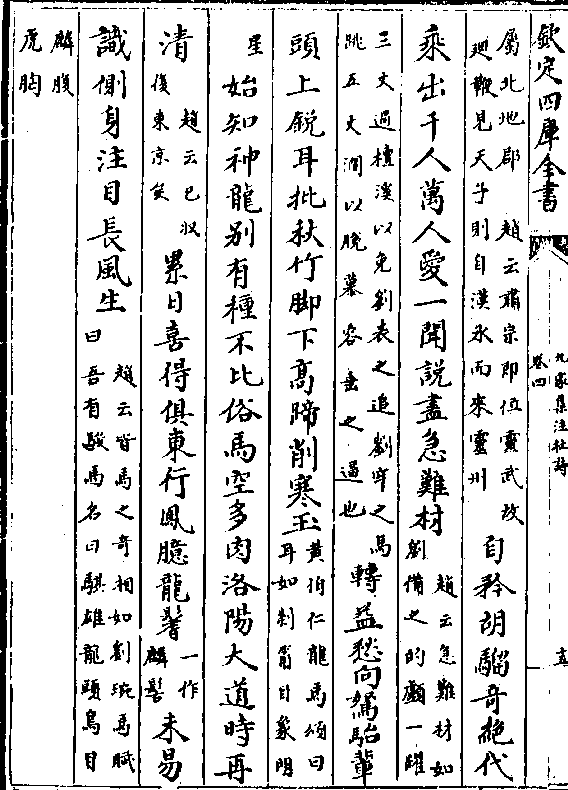 欽定四庫全書
九家集注杜詩
卷四
十五
屬北地郡 趙云肅宗即位靈武故
廻鞭見天子則自漢水而來靈州
自矜胡騮奇絶代
乘出千人萬人愛一聞說盡急難材
趙云急難材如
劉備之的顱一躍
三丈過檀溪以免劉表之追劉牢之馬
跳五丈澗以脫慕容垂之逼也
轉益愁向駑駘輩
頭上銳耳批秋竹脚下高蹄削寒玉
黄伯仁龍馬頌曰
耳如剡筩目象明
星
始知神龍别有種不比俗馬空多肉洛陽大道時再
清
趙云已収
復東京矣
累日喜得俱東行鳳臆龍鬐
一作
麟髻
未易
識側身注目長風生
趙云皆馬之奇相如劉琬馬賦
曰吾有駿馬名曰騏雄龍頭鳥目
麟腹
虎胸